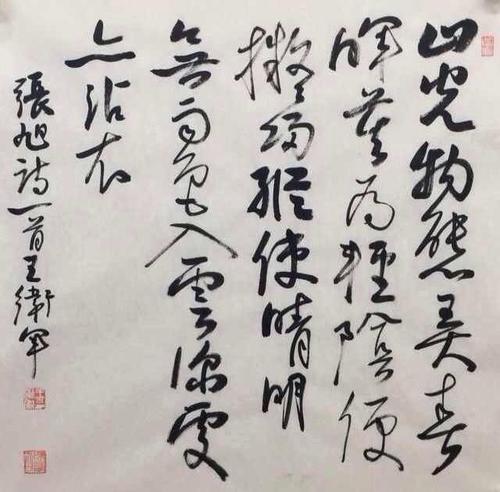 山光物態弄春
暉莫為輕陰便
擬歸縱使晴明
無雨色入雲深處
亦沾衣
張旭詩一首王衛軍